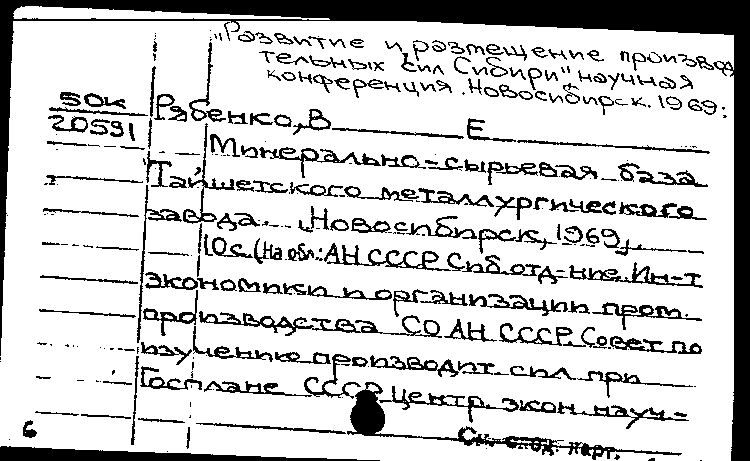 „Развитие и размещение производ
тельных сил Сибири" научная
конференция. Новосибирск. 1969:
50к
20591
Рябенко, В Е
Минерально-сырьевая база
Тайшетского металлургического
завода. „Новосибирск, 1969„.
10с. (На обл.: АН СССР. Сиб. отд-ние. Ин-т
экономики и организации пром.
производства СО АН СССР. Совет по
изучению производит. сил при
Госплане СССР. Центр. экон. науч-
См. след. карт.
6